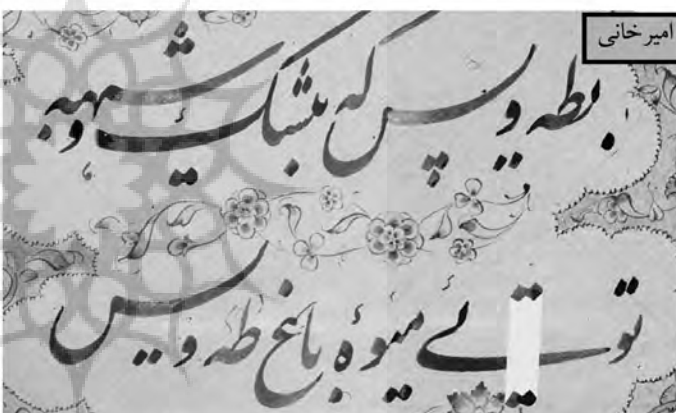 امیرخانی
بطه و یس که بیشک و شبهه
توئی میوهٔ باغ طه و یس